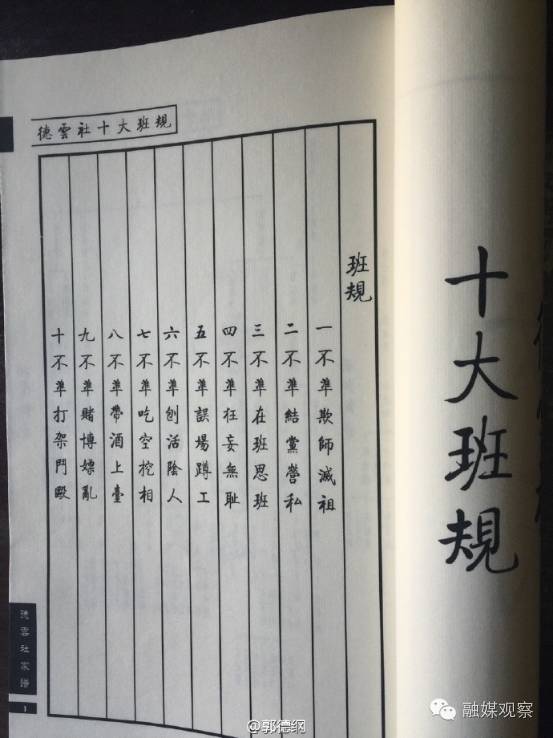 十大班規
德雲社十大班規
班規
一不準欺師滅祖
二不準結黨營私
三不準在班思班
四不準狂妄無耻
五不準誤場蹲工
六不準刨活陰人
七不準吃空挖相
八不準帶酒上臺
九不準賭博嫖亂
十不準打架鬥毆
德雲社家譜
1
@郭德纲
融媒观察